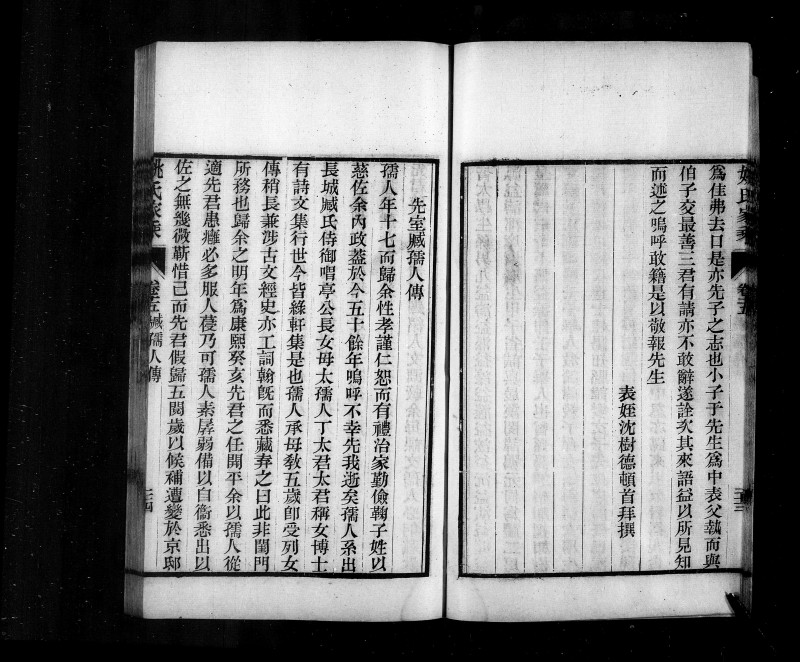 姚氏家乘 卷五 三三
為佳弗去口是亦先子之志也小子于先生為中表父執而與
伯子交最善三君有請亦不敢辭遂詮次其來語益以所見知
而述之嗚呼敢籍是以敬報先生
表姪沈樹德頓首拜撰
先室臧孺人傳
孺人年十七而歸余性孝謹仁恕而有禮治家勤儉鞠子姓以
慈佐余內政葢於今五十餘年嗚呼不幸先我逝矣孺人系出
長城臧氏侍御喟亭公長女母太孺人丁太君太君稱女博士
有詩文集行世今皆綠軒集是也孺人承母教五歲卽受列女
傳稍長兼涉古文經史亦工詞翰旣而悉藏弆之曰此非閨門
所務也歸余之明年為康熙癸亥先君之任開平余以孺人從
適先君患癰必多服人葠乃可孺人素孱弱備以自衞悉出以
佐之無幾微靳惜已而先君假歸五閱歲以候補遭變於京邸
姚氏家乘 卷五 臧孺人傳 三四